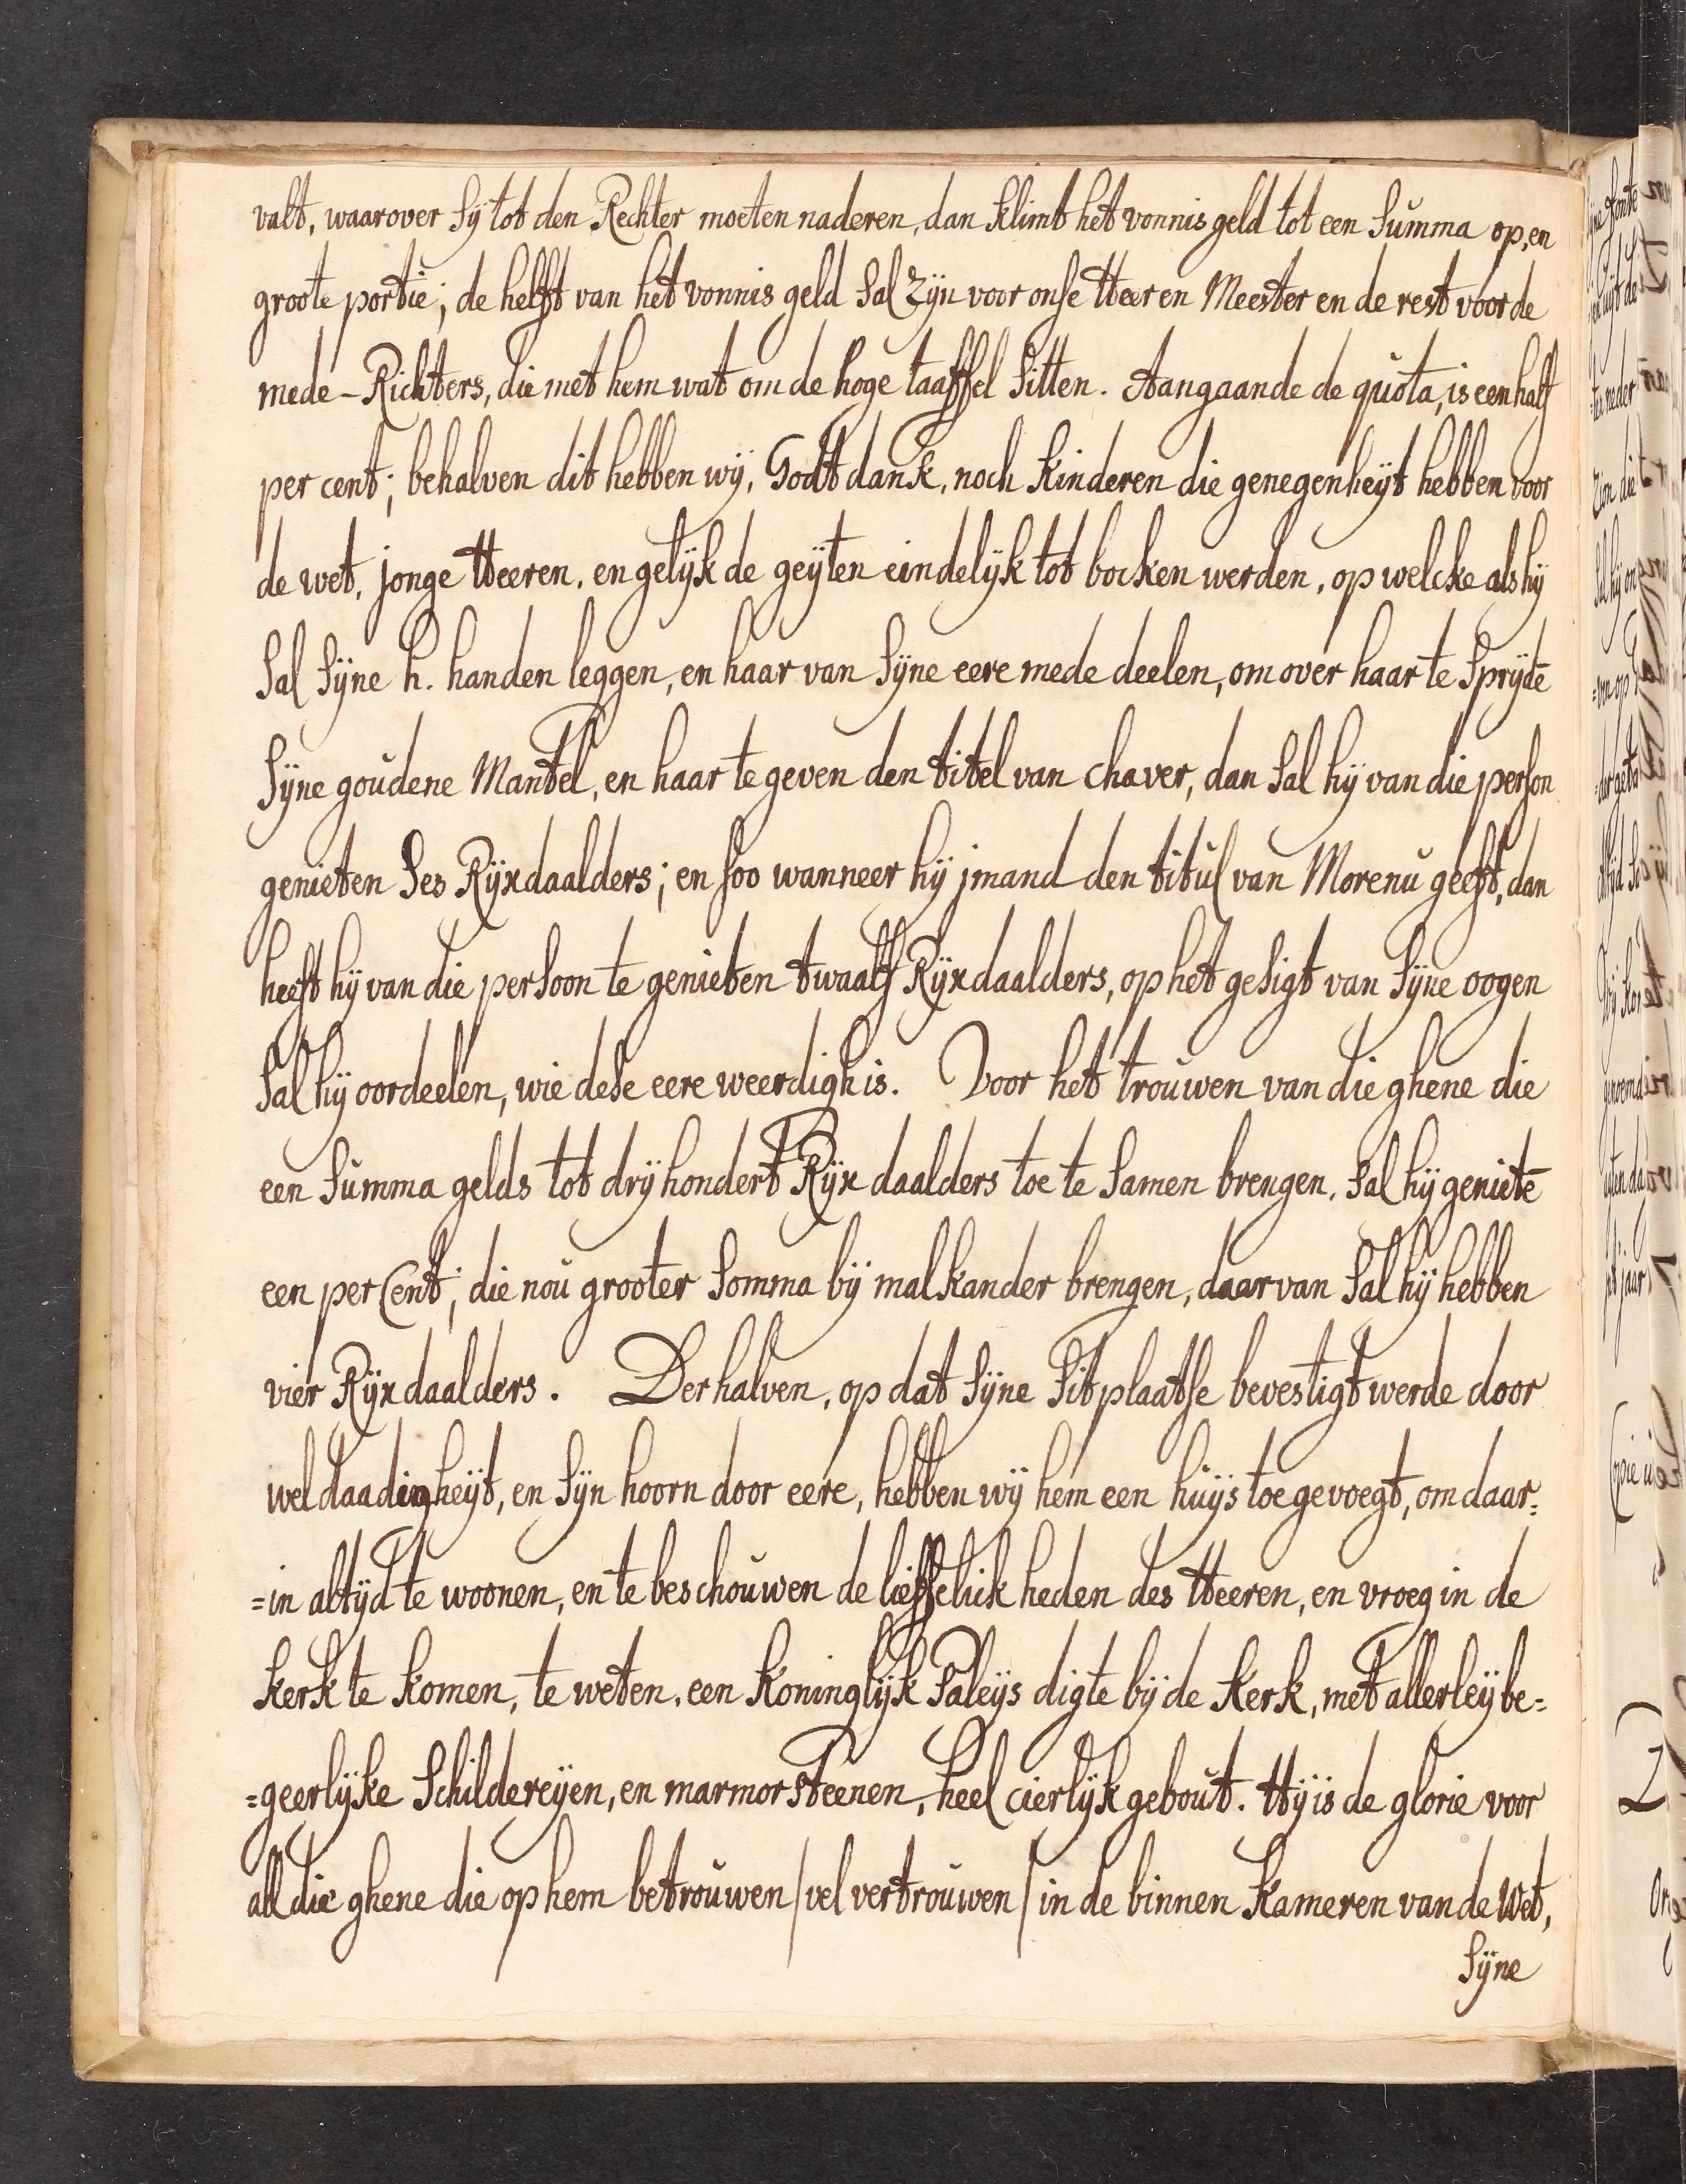 valt, waarover sÿ tot den Rechter moeten naderen, dan klimt het vonnis geld tot een Summa op, en
groote portie; de helfft van het vonnis geld sal zÿn voor onse Heer en Meester en de rest voor de
mede-Richters, die met hem wat om de hoge taaffel sitten. Aangaande de quota, is een half
per cent; behalven dit hebben wÿ, Godt dank, noch kinderen die genegenheÿt hebben voor
de wet, jonge Heeren, en gelÿk de geÿten eindelÿk tot bocken werden, op welcke als hÿ
sal sÿne h. handen leggen, en haar van sÿne eere mede deelen, om over haar te sprÿdē
sÿne goudene Mantel, en haar te geven den titel van chaver, dan sal hÿ van die person
genieten ses Rÿxdaalders; en soo wanneer hÿ jmand den titul van Morenu geeft, dan
heeft hÿ van die persoon te genieten twaalf Rÿxdaalders, op het gesigt van sÿne oogen
sal hÿ oordeelen, wie dese eere weerdigh is. Voor het trouwen van die ghene die
een summa gelds tot drÿ hondert Rÿxdaalders toe te samen brengen, sal hÿ genietē
een per Cent; die nou grooter somma bÿ malkander brengen, daar van sal hÿ hebben
vier Rÿxdaalders. Derhalven, op dat sÿne sitplaatse bevestigt werde door
weldaadingheÿt, en sÿn hoorn door eere, hebben wÿ hem een huÿs toegevoegt, om daar=
=in altÿd te woonen, en te beschouwen de lieffelickheden des Heeren, en vroeg in de
kerk te komen, te weten, een Koninglÿk Paleÿs digte bÿ de Kerk, met allerleÿ be=
=geerlÿke Schildereÿen, en marmorsteenen, heel cierlÿk gebout. Hÿ is de glorie voor
all die ghene die op hem betrouwen / vel vertrouwen / in de binnen Kameren van de Wet,
Sÿne